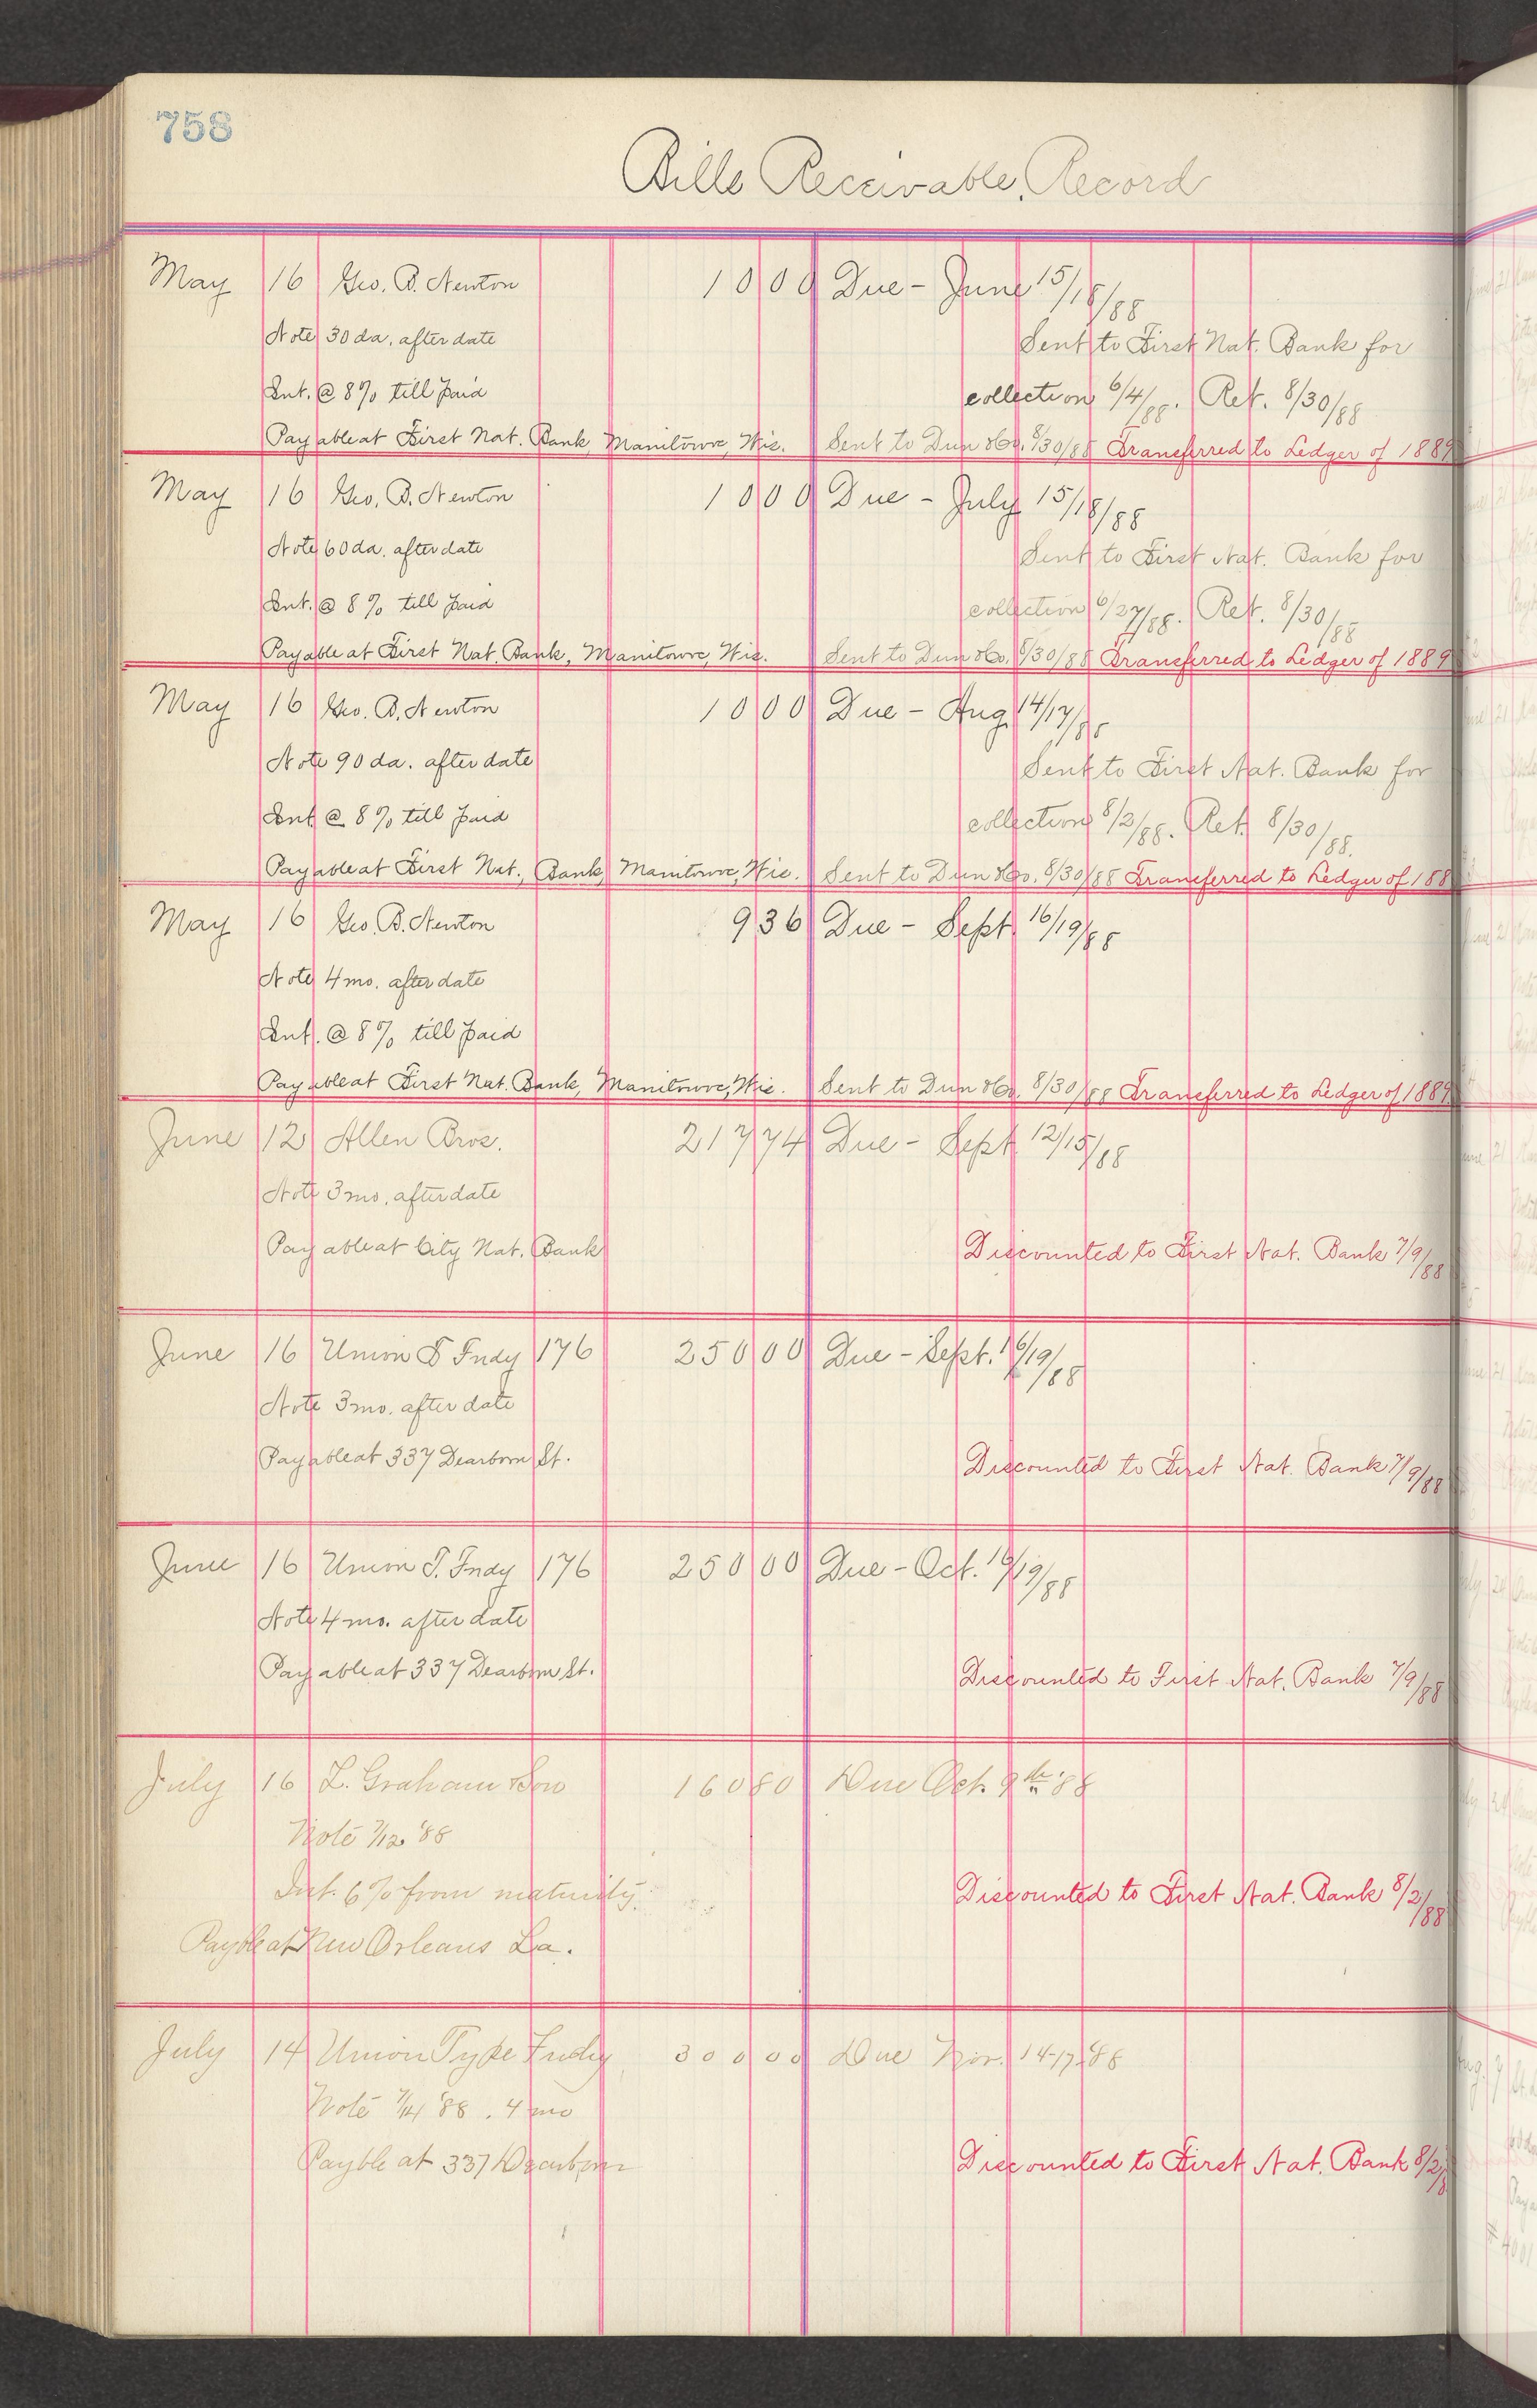 758
Bills Receivable Record
May 16 Geo. B. Newton 10 00 Due - June 15/18/88
Note 30 da. after date Sent to First Nat. Bank for
Int. @ 8% till paid collection 6/4/88. Ret. 8/30/88
Payable at First Nat. Bank, Manitowoc, Wis. Sent to Dun & Co. 8/30/88 Transferred to Ledger of 1889
May 16 Geo. B. Newton 10 00 Due - July 15/18/88
Note 60 da. after date Sent to First Nat. Bank for
Int. @ 8% till paid collection 6/27/88. Ret. 8/30/88
Payable at First Nat. Bank, Manitowoc, Wis. Sent to Dun & Co. 8/30/88 Transferred to Ledger of 1889
May 16 Geo. B. Newton 10 00 Due - Aug. 14/17/88
Note 90 da. after date Sent to First Nat. Bank for
Int @ 8% till paid collection 8/2/88. Ret. 8/30/88.
Payable at First Nat. Bank, Manitowoc, Wis. Sent to Dun & Co. 8/30/88 Transferred to Ledger of 188
May 16 Geo. B. Newton 9 36 Due - Sept. 16/19/88
Note 4 mo. after date
Int. @ 8% till paid
Payable at First Nat. Bank, Manitowoc, Wis. Sent to Dun & Co. 8/30/88 Transferred to Ledger of 1889
June 12 Allen Bros. 217 74 Due - Sept. 12/15/88
Note 3 mo. after date
Payable at City Nat. Bank Discounted to First Nat. Bank 7/9/88
June 16 Union T Fndy 176 250 00 Due - Sept. 16/19/88
Note 3 mo. after date
Payable at 337 Dearborn St. Discounted to First Nat. Bank 7/9/88
June 16 Union T. Fndy 176 250 00 Due - Oct. 16/19/88
Note 4 mo. after date
Payable at 337 Dearborn St. Discounted to First Nat. Bank 7/9/88
July 16 L. Graham & Son 160 80 Due Oct. 9th '88
Note 7/12 '88
Int. 6% from maturity Discounted to First Nat. Bank 8/2/88
Payble at New Orleans La.
July 14 Union Type Fndy 300 00 Due Nov. 14-17 '88
Note 7/14 '88. 4 mo
Payble at 337 Dearborn Discounted to First Nat. Bank 8/2/